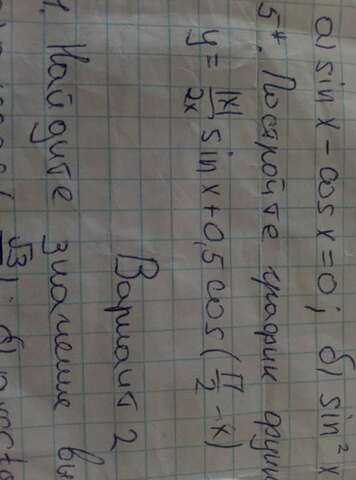 а) sin x - cos x = 0; б) sin² x
5*. Постройте график
y = |x|/2x sin x + 0,5 cos (π/2 - x)
Вариант 2
1. Найдите значение
√3